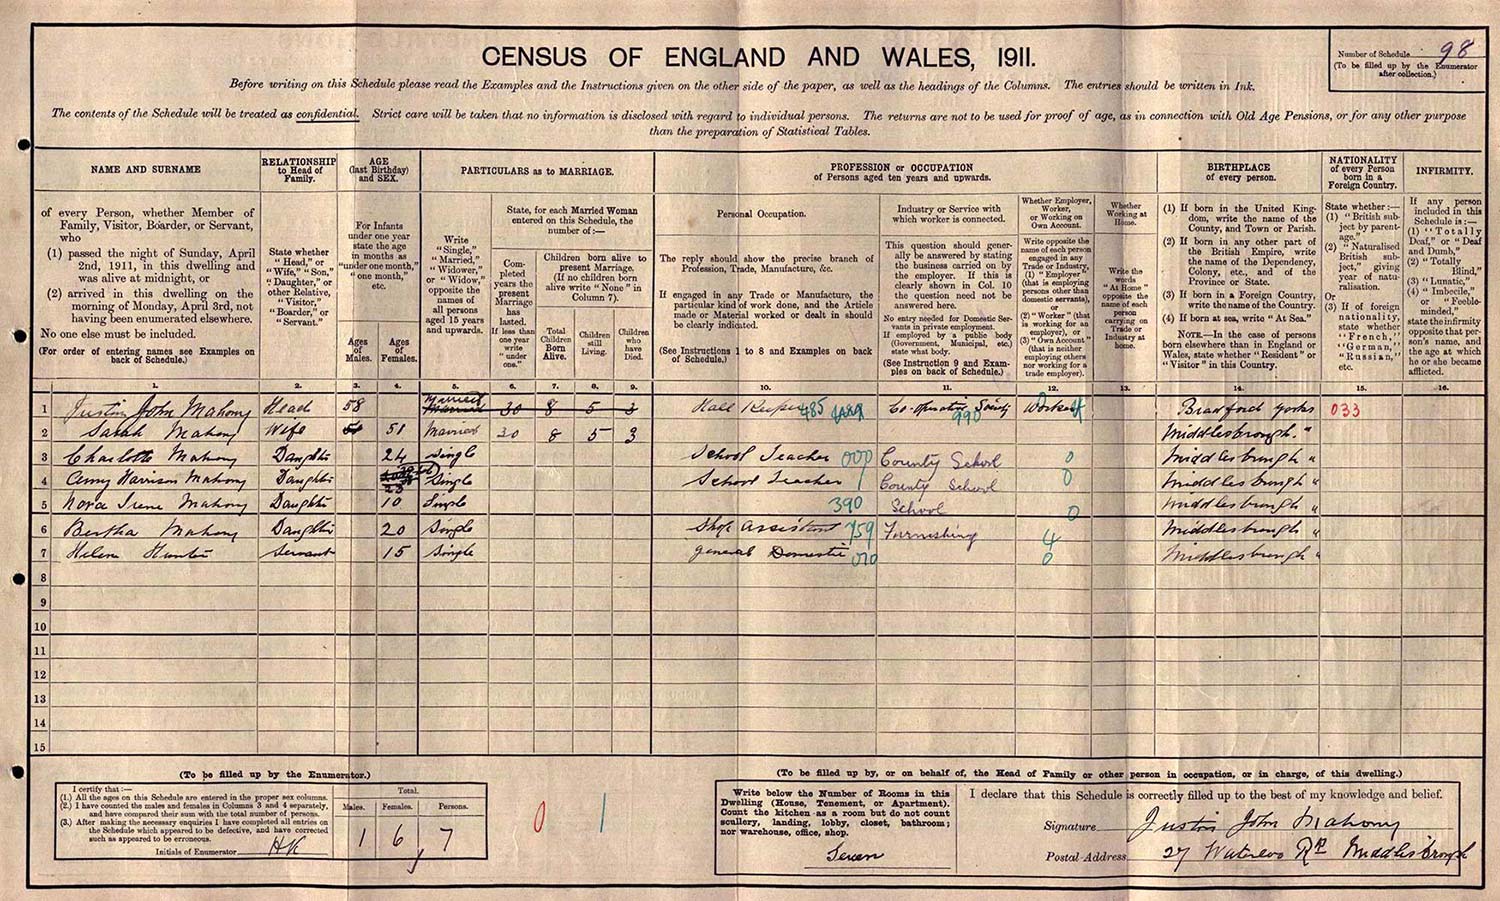 CENSUS OF ENGLAND AND WALES, 1911.
Number of Schedule 98
(To be filled up by the Enumerator
after collection.)
Before writing on this Schedule please read the Examples and the Instructions given on the other side of the paper, as well as the headings of the Columns. The entries should be written in Ink.
The contents of the Schedule will be treated as confidential. Strict care will be taken that no information is disclosed with regard to individual persons. The returns are not to be used for proof of age, as in connection with Old Age Pensions, or for any other purpose
than the preparation of Statistical Tables.
NAME AND SURNAME
of every Person, whether Member of
Family, Visitor, Boarder, or Servant,
who
(1) passed the night of Sunday, April
2nd, 1911, in this dwelling and
was alive at midnight, or
(2) arrived in this dwelling on the
morning of Monday, April 3rd, not
having been enumerated elsewhere.
No one else must be included.
(For order of entering names see Examples on
back of Schedule.)
RELATIONSHIP
to Head of
Family.
State whether
"Head," or
"Wife," "Son,"
"Daughter," or
other Relative,
"Visitor,"
"Boarder," or
"Servant."
AGE
(last Birthday)
and SEX.
For Infants
under one year
state the age
in months as
"under one month,"
"one month,"
etc.
Ages
of
Males.
Ages
of
Females.
PARTICULARS as to MARRIAGE.
Write
"Single,"
"Married,"
"Widower,"
or "Widow,"
opposite the
names of
all persons
aged 15 years
and upwards.
State, for each Married Woman
entered on this Schedule, the
number of:—
Com-
pleted
years the
present
Marriage
has
lasted.
If less than
one year
write
"under
one."
Children born alive to
present Marriage.
(If no children born
alive write "None" in
Column 7).
Total
Children
Born
Alive.
Children
still
Living.
Children
who
have
Died.
PROFESSION or OCCUPATION
of Persons aged ten years and upwards.
Personal Occupation.
The reply should show the precise branch of
Profession, Trade, Manufacture, &c.
If engaged in any Trade or Manufacture, the
particular kind of work done, and the Article
made or Material worked or dealt in should
be clearly indicated.
(See Instructions 1 to 8 and Examples on back
of Schedule.)
Industry or Service with
which worker is connected.
This question should gener-
ally be answered by stating
the business carried on by
the employer. If this is
clearly shown in Col. 10
the question need not be
answered here.
No entry needed for Domestic Ser-
vants in private employment.
If employed by a public body
(Government, Municipal, etc.)
state what body.
(See Instruction 9 and Exam-
ples on back of Schedule.)
Whether Employer,
Worker,
or Working on
Own Account.
Write opposite the
name of each person
engaged in any
Trade or Industry,
(1) "Employer"
(that is employing
persons other than
domestic servants),
or
(2) "Worker" (that
is working for an
employer), or
(3) "Own Account"
(that is neither
employing others
nor working for a
trade employer).
Whether
Working at
Home.
Write the
words
"At Home"
opposite the
name of each
person
carrying on
Trade or
Industry at
home.
BIRTHPLACE
of every person.
(1) If born in the United King-
dom, write the name of the
County, and Town or Parish.
(2) If born in any other part of
the British Empire, write
the name of the Dependency,
Colony, etc., and of the
Province or State.
(3) If born in a Foreign Country,
write the name of the Country.
(4) If born at sea, write "At Sea."
NOTE.—In the case of persons
born elsewhere than in England or
Wales, state whether "Resident" or
"Visitor" in this Country.
NATIONALITY
of every Person
born in a
Foreign Country.
State whether:—
(1) "British sub-
ject by parent-
age."
(2) "Naturalised
British sub-
ject," giving
year of natu-
ralisation.
Or
(3) If of foreign
nationality,
state whether
"French,"
"German,"
"Russian,"
etc.
INFIRMITY.
If any person
included in this
Schedule is:—
(1) "Totally
Deaf," or "Deaf
and Dumb,"
(2) "Totally
Blind,"
(3) "Lunatic,"
(4) "Imbecile,"
or "Feeble-
minded,"
state the infirmity
opposite that per-
son's name, and
the age at which
he or she became
afflicted.
1. 2. 3. 4. 5. 6. 7. 8. 9. 10. 11. 12. 13. 14. 15. 16.
1 Justin John Mahony Head 58 Married Married 30 8 5 3 Hall Keeper 485 Co-operative Society 990 Worker Bradford Yorks 033
2 Sarah Mahony Wife 51 Married 30 8 5 3 Middlesbrough "
3 Charlotte Mahony Daughter 24 Single School Teacher 000 County School 0 Middlesbrough "
4 Amy Harrison Mahony Daughter 23 Single School Teacher County School 0 Middlesbrough "
5 Nora Irene Mahony Daughter 10 Single 390 School 0 Middlesbrough "
6 Bertha Mahony Daughter 20 Single Shop Assistant 759 Furnishing 4 Middlesbrough "
7 Helena Hunter Servant 15 Single General Domestic 010 0 Middlesbrough "
8
9
10
11
12
13
14
15
(To be filled up by the Enumerator.)
I certify that:—
(1.) All the ages on this Schedule are entered in the proper sex columns.
(2.) I have counted the males and females in Columns 3 and 4 separately,
and have compared their sum with the total number of persons.
(3.) After making the necessary enquiries I have completed all entries on
the Schedule which appeared to be defective, and have corrected
such as appeared to be erroneous.
Initials of Enumerator HK
Total.
Males. Females. Persons.
1 6 7
0 1
(To be filled up by, or on behalf of, the Head of Family or other person in occupation, or in charge, of this dwelling.)
Write below the Number of Rooms in this
Dwelling (House, Tenement, or Apartment).
Count the kitchen as a room but do not count
scullery, landing, lobby, closet, bathroom;
nor warehouse, office, shop.
Seven
I declare that this Schedule is correctly filled up to the best of my knowledge and belief.
Signature Justin John Mahony
Postal Address 27 Waterloo Rd Middlesbrough